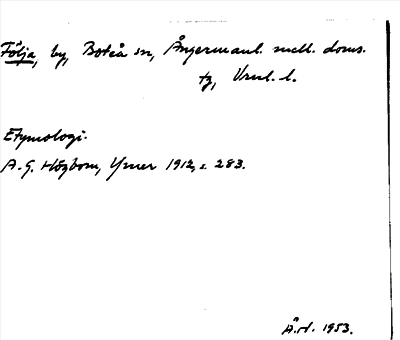 Följa, by, Boteå sn, Ångermanl. mell. doms.
tg, Vnrl. l.
Etymologi.
A.G. Högbom, Ymer 1912, s. 283.
Å.d. 1953.